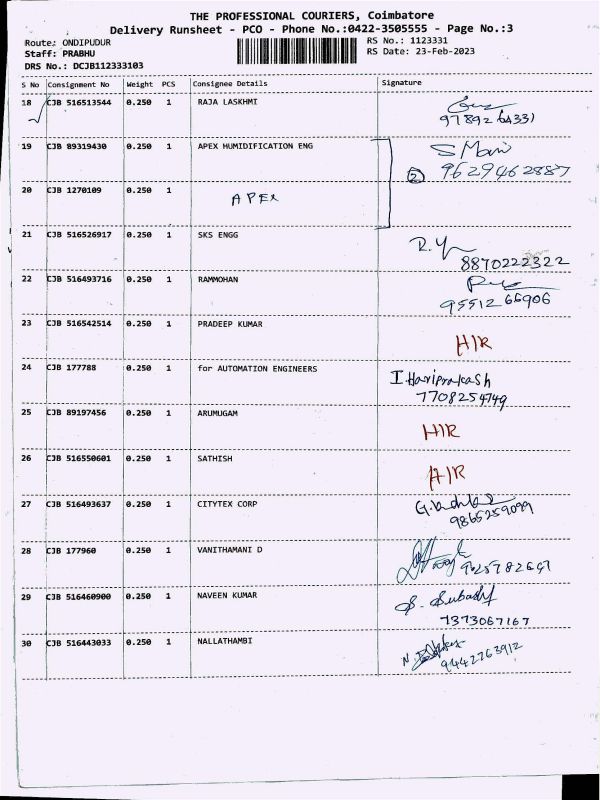 THE PROFESSIONAL COURIERS, Coimbatore
Delivery Runsheet - PCO - Phone No.:0422-3505555 - Page No.:3
Route: ONDIPUDUR
RS No.: 1123331
Staff: PRABHU
RS Date: 23-Feb-2023
DRS No.: DCJB112333103
S No Consignment No Weight PCS Consignee Details Signature
18 CJB 516513544 0.250 1 RAJA LASKHMI
9789264331
19 CJB 89319430 0.250 1 APEX HUMIDIFICATION ENG S Mani
2 9629462887
20 CJB 1270109 0.250 1 APEX
21 CJB 516526917 0.250 1 SKS ENGG
8870222322
22 CJB 516493716 0.250 1 RAMMOHAN
9551266906
23 CJB 516542514 0.250 1 PRADEEP KUMAR H/R
24 CJB 177788 0.250 1 for AUTOMATION ENGINEERS I Hariprakash
7708254749
25 CJB 89197456 0.250 1 ARUMUGAM H/R
26 CJB 516550601 0.250 1 SATHISH H/R
27 CJB 516493637 0.250 1 CITYTEX CORP
9865259099
28 CJB 177960 0.250 1 VANITHAMANI D
29 CJB 516460900 0.250 1 NAVEEN KUMAR S. Subash
7373067167
30 CJB 516443033 0.250 1 NALLATHAMBI
9442263912